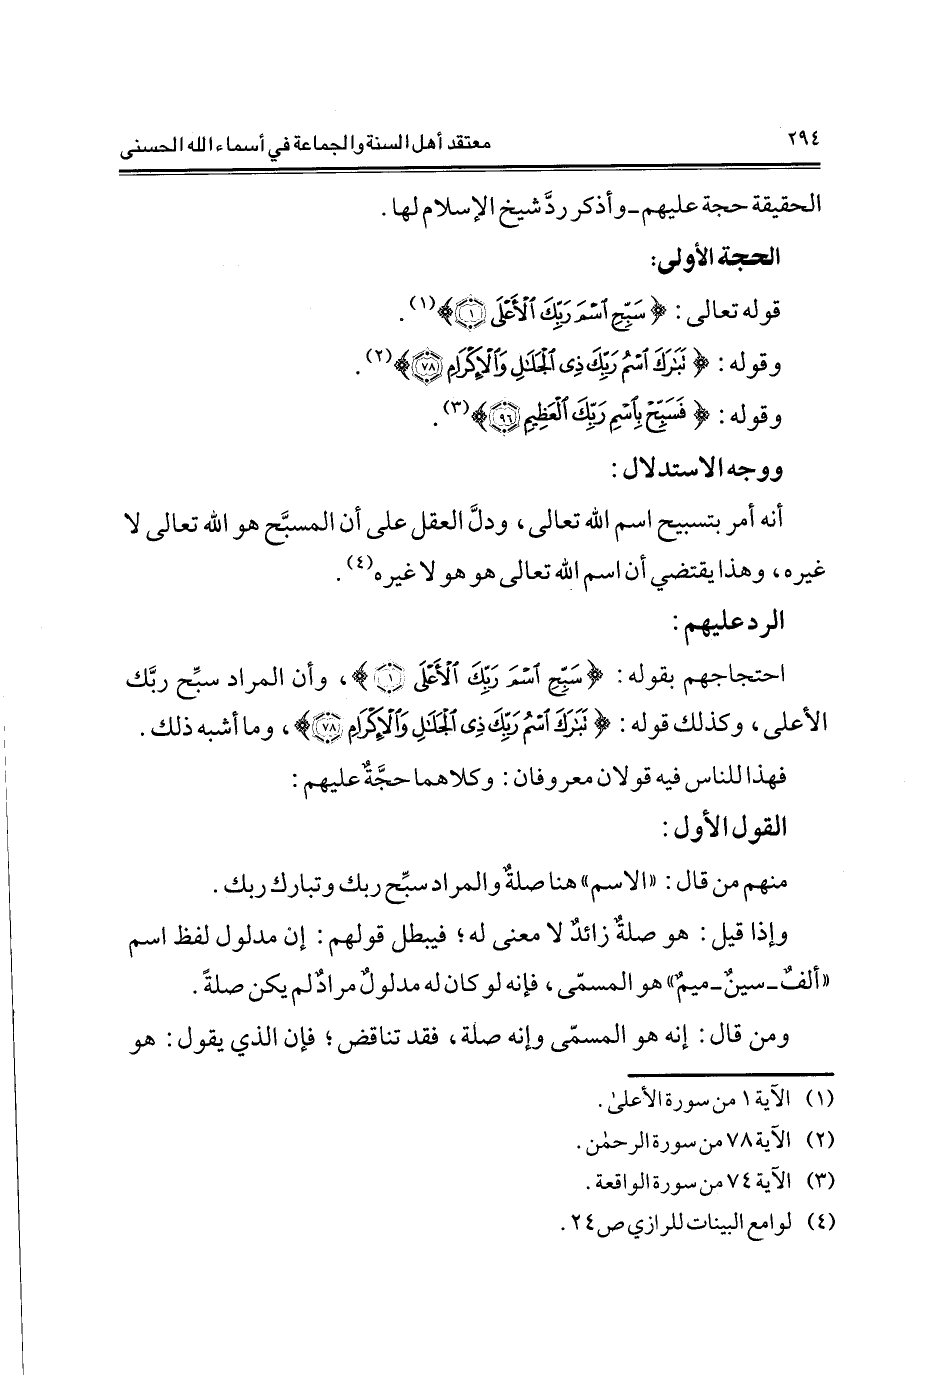 ٢٩٤
معتقد أهل السنة والجماعة في أسماء الله الحسنى
الحقيقة حجة عليهم ـ وأذكر ردَّ شيخ الإسلام لها .
الحجة الأولى:
قوله تعالى : ﴿ سَبِّحِ ٱسْمَ رَبِّكَ ٱلْأَعْلَى ١ ﴾(١) .
وقوله : ﴿ تَبَٰرَكَ ٱسْمُ رَبِّكَ ذِى ٱلْجَلَٰلِ وَٱلْإِكْرَامِ ٧٨ ﴾(٢) .
وقوله : ﴿ فَسَبِّحْ بِٱسْمِ رَبِّكَ ٱلْعَظِيمِ ٩٦ ﴾(٣) .
ووجه الاستدلال :
أنه أمر بتسبيح اسم الله تعالى ، ودلَّ العقل على أن المسبَّح هو الله تعالى لا
غيره ، وهذا يقتضي أن اسم الله تعالى هو هو لا غيره(٤) .
الرد عليهم :
احتجاجهم بقوله : ﴿ سَبِّحِ ٱسْمَ رَبِّكَ ٱلْأَعْلَى ١ ﴾ ، وأن المراد سبِّح ربَّك
الأعلى ، وكذلك قوله : ﴿ تَبَٰرَكَ ٱسْمُ رَبِّكَ ذِى ٱلْجَلَٰلِ وَٱلْإِكْرَامِ ٧٨ ﴾ ، وما أشبه ذلك .
فهذا للناس فيه قولان معروفان : وكلاهما حجَّةٌ عليهم :
القول الأول :
منهم من قال : «الاسم» هنا صلةٌ والمراد سبِّح ربك وتبارك ربك .
وإذا قيل : هو صلةٌ زائدٌ لا معنى له ؛ فيبطل قولهم : إن مدلول لفظ اسم
«ألفٌ ـ سينٌ ـ ميمٌ» هو المسمّى ، فإنه لو كان له مدلولٌ مرادٌ لم يكن صلةً .
ومن قال : إنه هو المسمّى وإنه صلة ، فقد تناقض ؛ فإن الذي يقول : هو
(١) الآية ١ من سورة الأعلىٰ .
(٢) الآية ٧٨ من سورة الرحمٰن .
(٣) الآية ٧٤ من سورة الواقعة .
(٤) لوامع البينات للرازي ص ٢٤ .